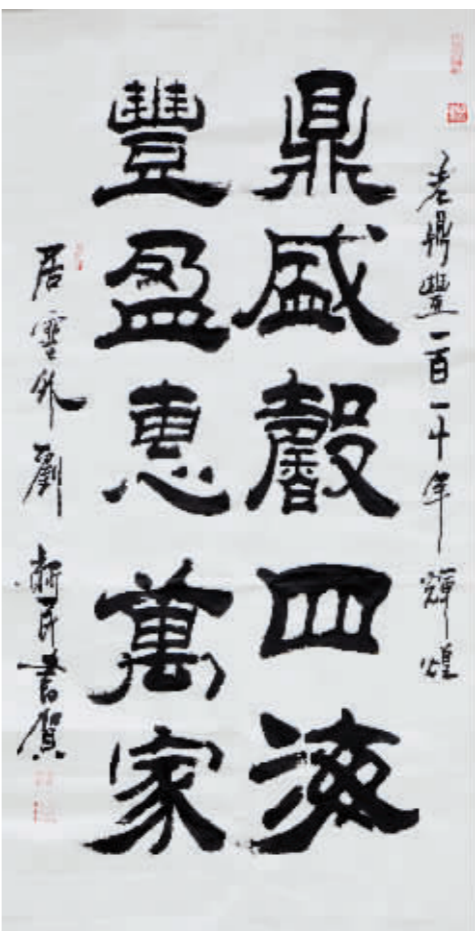 老鼎豐一百一十年輝煌
鼎盛馨四海
豐盈惠萬家
居雲外劉民書賀